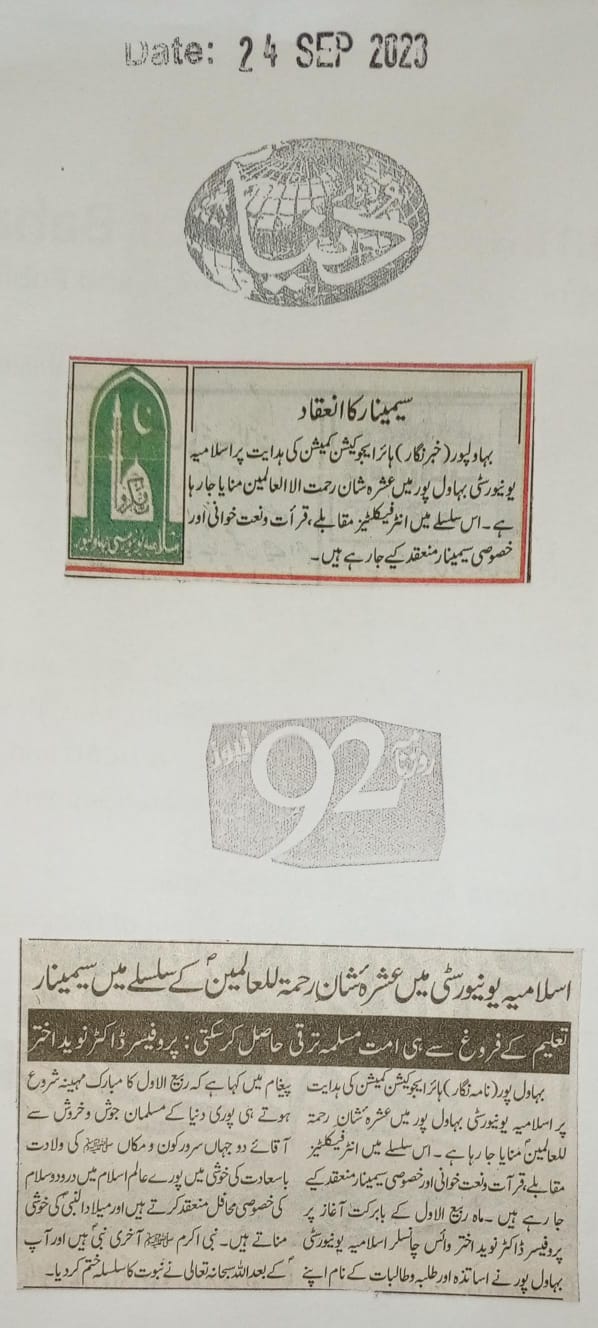 Date: 24 SEP 2023
دنیا
سیمینار کا انعقاد
بہاولپور (خبرنگار) ہائر ایجوکیشن کمیشن کی ہدایت پر اسلامیہ
یونیورسٹی بہاول پور میں عشرہ شان رحمت الا العالمین منایا جا رہا
ہے۔ اس سلسلے میں انٹر فیکلٹیز مقابلے، قرأت و نعت خوانی اور
خصوصی سیمینار منعقد کیے جا رہے ہیں۔
اسلامیہ یونیورسٹی بہاولپور
روزنامہ 92 نیوز
اسلامیہ یونیورسٹی میں عشرۂ شانِ رحمۃ للعالمینؐ کے سلسلے میں سیمینار
تعلیم کے فروغ سے ہی امت مسلمہ ترقی حاصل کر سکتی: پروفیسر ڈاکٹر نوید اختر
بہاول پور (نامہ نگار) ہائر ایجوکیشن کمیشن کی ہدایت
پر اسلامیہ یونیورسٹی بہاول پور میں عشرۂ شانِ رحمۃ
للعالمینؐ منایا جا رہا ہے۔ اس سلسلے میں انٹر فیکلٹیز
مقابلے، قرآت و نعت خوانی اور خصوصی سیمینار منعقد کیے
جا رہے ہیں۔ ماہ ربیع الاول کے بابرکت آغاز پر
پروفیسر ڈاکٹر نوید اختر وائس چانسلر اسلامیہ یونیورسٹی
بہاول پور نے اساتذہ اور طلبہ و طالبات کے نام اپنے
پیغام میں کہا ہے کہ ربیع الاول کا مبارک مہینہ شروع
ہوتے ہی پوری دنیا کے مسلمان جوش و خروش سے
آقائے دو جہاں سرور کون و مکاں ﷺ کی ولادت
باسعادت کی خوشی میں پورے عالم اسلام میں درود و سلام
کی خصوصی محافل منعقد کرتے ہیں اور میلاد النبیؐ کی خوشی
مناتے ہیں۔ نبی اکرم ﷺ آخری نبیؐ ہیں اور آپ
ؐ کے بعد اللہ سبحانہ تعالی نے نبوت کا سلسلہ ختم کر دیا۔